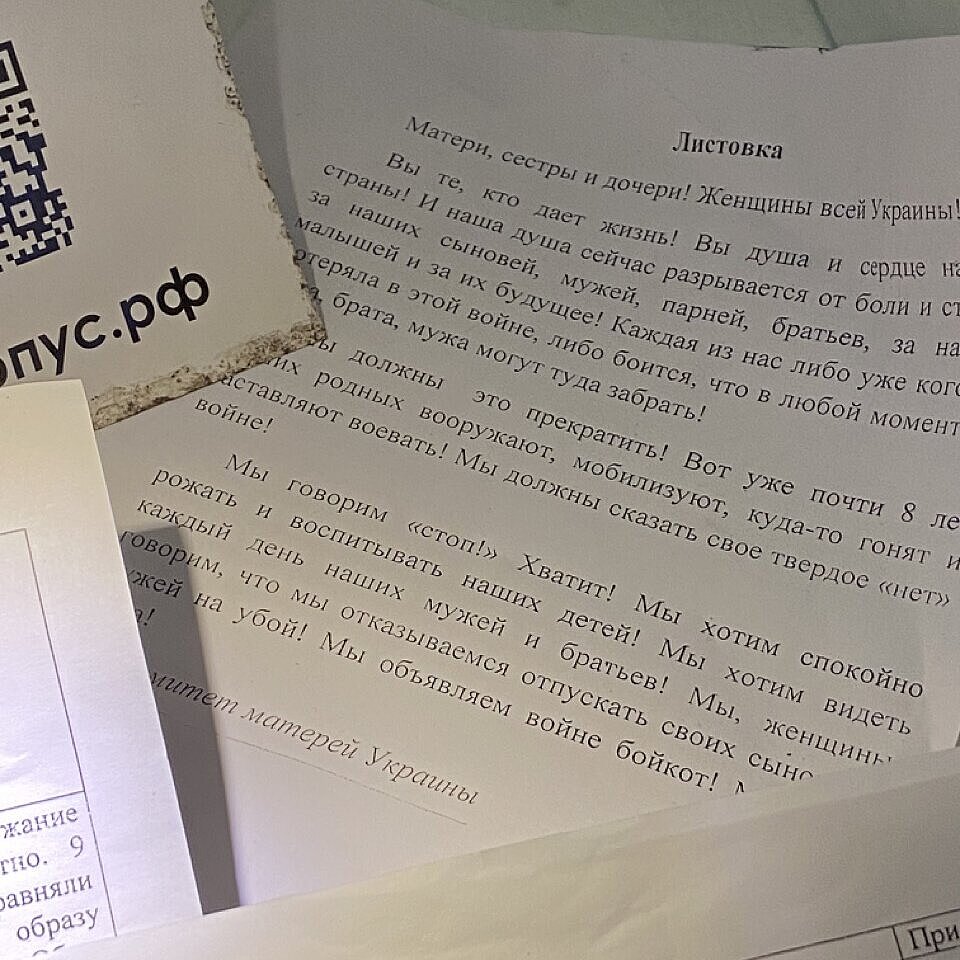 Листовка
Матери, сестры и дочери! Женщины всей Украины!
Вы те, кто дает жизнь! Вы душа и сердце
страны! И наша душа сейчас разрывается от боли и
за наших сыновей, мужей, парней, братьев, за
малышей и за их будущее! Каждая из нас либо уже
в этой войне, либо боится, что в любой
брата, мужа могут туда забрать!
должны это прекратить! Вот уже почти 8
родных вооружают, мобилизуют, куда-то гонят и
воевать! Мы должны сказать свое твердое «нет»
войне!
Мы говорим «стоп!» Хватит! Мы хотим спокойно
рожать и воспитывать наших детей! Мы хотим видеть
каждый день наших мужей и братьев! Мы, женщины
говорим, что мы отказываемся отпускать своих
на убой! Мы объявляем войне бойкот!
матерей Украины
.рф
образу